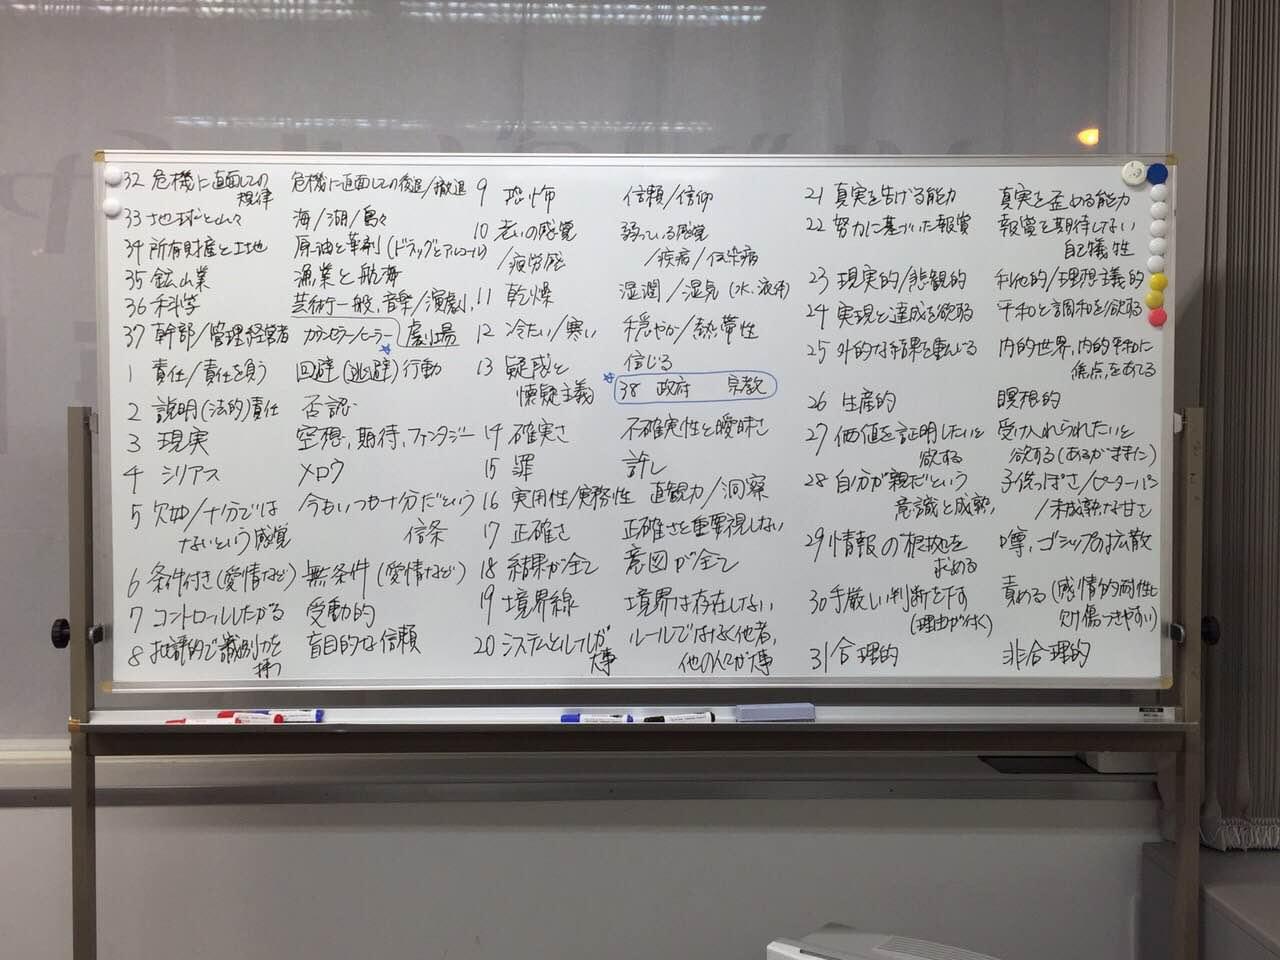 32 危機に直面しての 危機に直面しての後退/撤退
規律
33 地球と山々 海/湖/島々
34 所有財産と土地 原油と薬剤(ドラッグとアルコール)
35 鉱山業 漁業と航海
36 科学 芸術一般、音楽/演劇、
劇場
37 幹部/管理経営者 カウンセラー/ヒーラー
1 責任/責任を負う 回避(逃避)行動
2 説明(法的)責任 否認
3 現実 空想、期待、ファンタジー
4 シリアス メロウ
5 欠如/十分では 今もいつも十分だという
ないという感覚 信条
6 条件付き(愛情など) 無条件(愛情など)
7 コントロールしたがる 受動的
8 批評的で識別力を 盲目的な信頼
持つ
9 恐怖 信頼/信仰
10 老いの感覚 弱っている感覚
/疲労感 /疾病/伝染病
11 乾燥 湿潤/湿気(水、液体)
12 冷たい/寒い 穏やか/熱帯性
13 疑惑と 信じる
懐疑主義
38 政府 宗教
14 確実さ 不確実性と曖昧さ
15 罪 許し
16 実用性/実務性 直観力/洞察
17 正確さ 正確さを重要視しない
18 結果が全て 意図が全て
19 境界線 境界は存在しない
20 システムとルールが ルールではなく他者、
大事 他の人が大事
21 真実を告げる能力 真実を歪める能力
22 努力に基づいた報賞 報賞を期待しない
自己犠牲
23 現実的/悲観的 利他的/理想主義的
24 実現と達成を欲する 平和と調和を欲する
25 外的な結果を重んじる 内的世界、内的平和に
焦点をあてる
26 生産的 瞑想的
27 価値を証明したいと 受け入れられたいと
欲する 欲する(あるがままに)
28 自分が親だという 子供っぽさ/ピーターパン
意識と成熟、 /未成熟な甘さ
29 情報の根拠を 噂、ゴシップの拡散
求める
30 手厳しい判断を下す 責める(感情的耐性に
(理由が付く) 欠け傷つきやすい)
31 合理的 非合理的